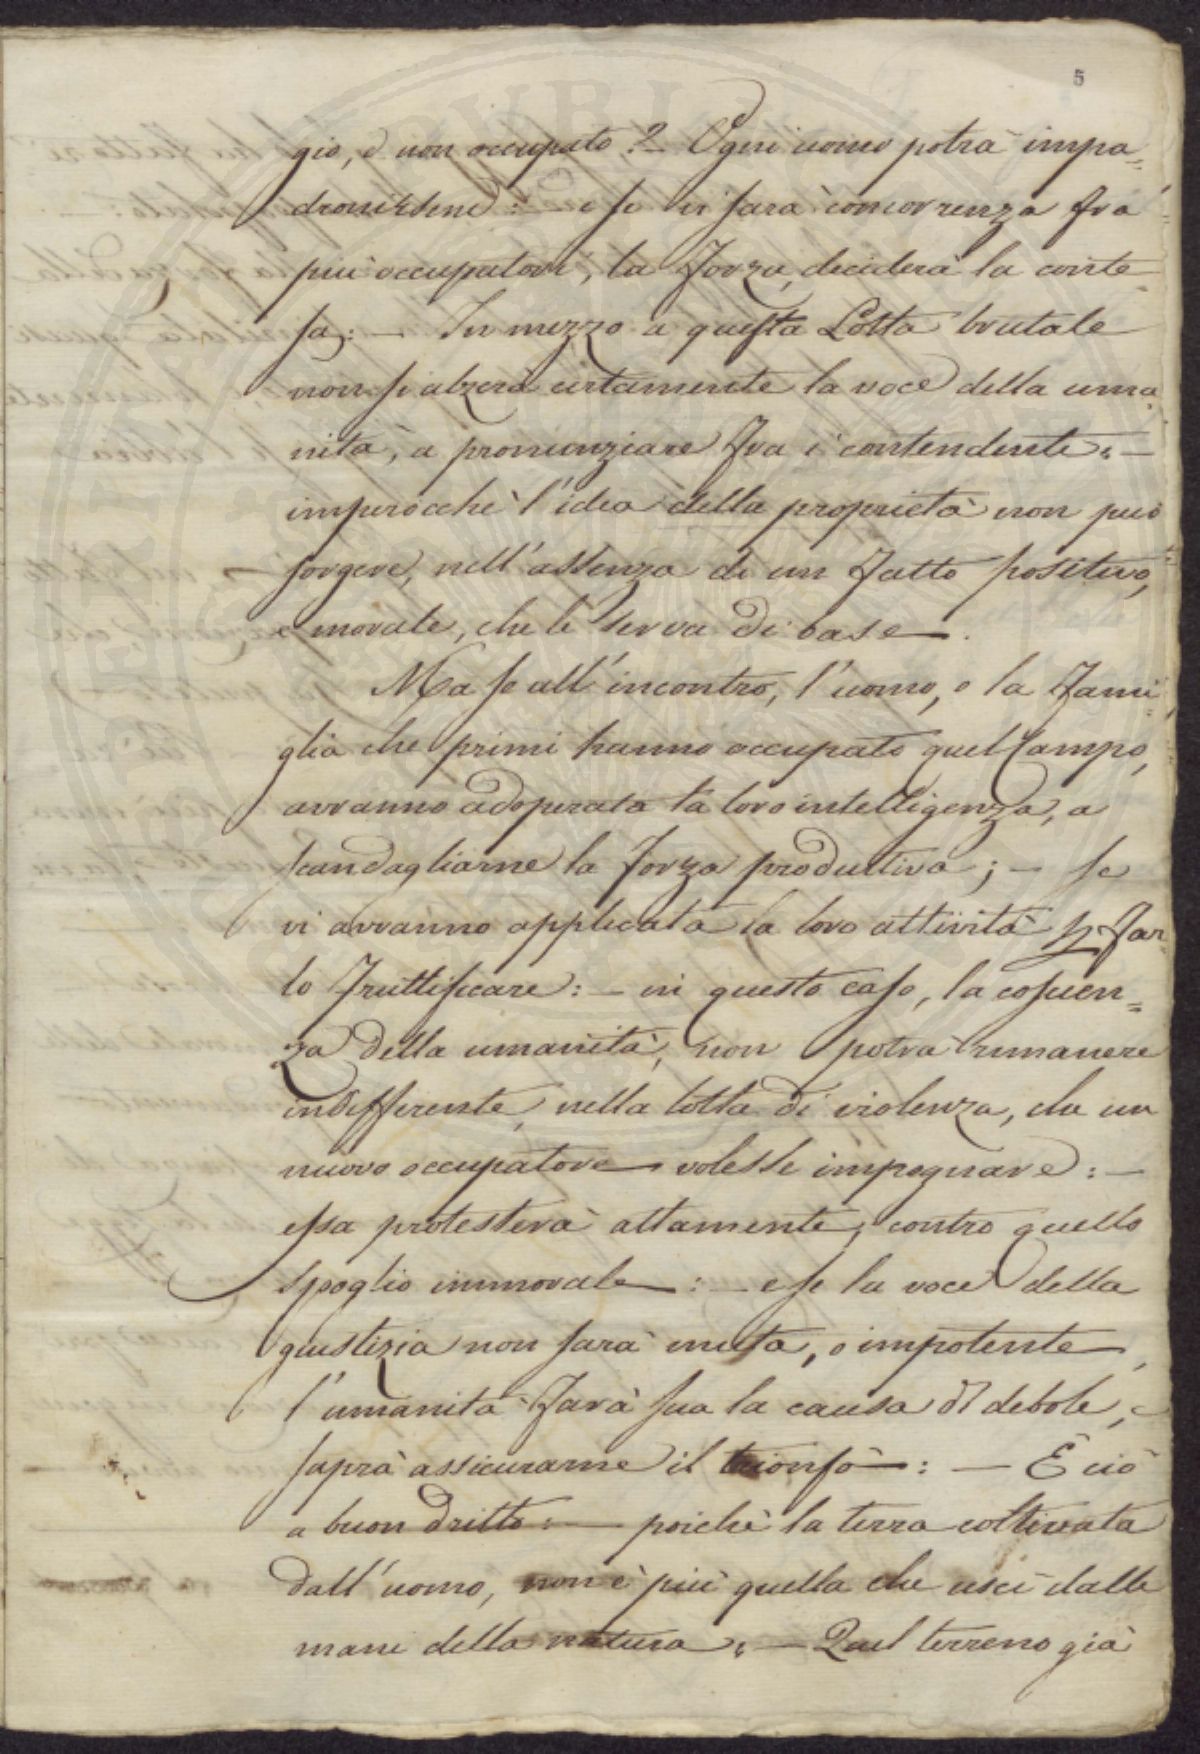 5
gio, è non occupato? — Ogni uomo potrà impa=
dronirsene: — e se vi sarà concorrenza fra
più occupatori, la forza, deciderà la conte=
sa: — In mezzo a questa Lotta brutale
non si alzerà certamente la voce della uma=
nità, a pronunziare fra i contendenti: —
imperocchè l'idea della proprietà non può
sorgere, nell'assenza di un fatto positivo,
e morale, che le serva di base.
Ma se all'incontro, l'uomo, o la fami=
glia che primi hanno occupato quel Campo,
avranno adoperata la loro intelligenza, a
scandagliarne la forza produttiva; — se
vi avranno applicata la loro attività p far=
lo fruttificare: — in questo caso, la coscien=
za della umanità, non potrà rimanere
indifferente, nella lotta di violenza, che un
nuovo occupatore volesse impegnare: —
essa protesterà altamente, contro quello
spoglio immorale: — e se la voce della
giustizia non sarà muta, o impotente,
l'umanità farà sua la causa dl debole, e
saprà assicurarne il trionfo: — E ciò
a buon dritto: — poichè la terra coltivata
dall'uomo, non è più quella che uscì dalle
mani della natura: — Quel terreno già